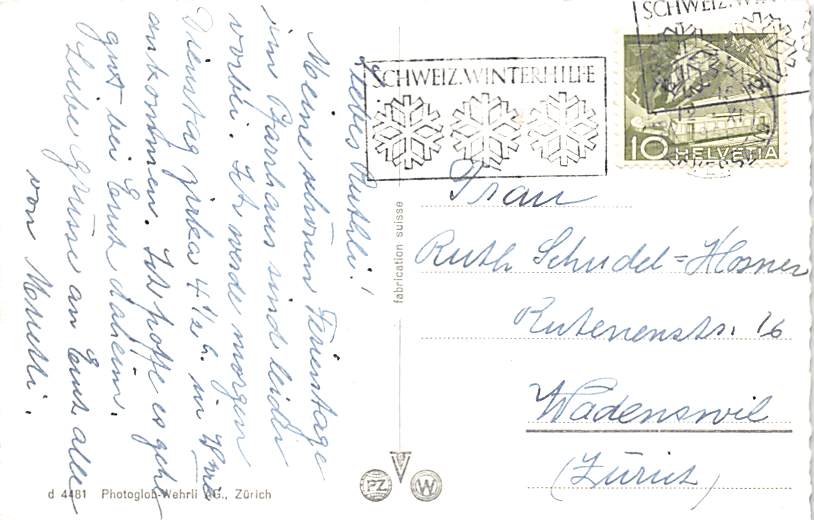 SCHWEIZ. WINTERHILFE
SCHWEIZ. WIN
10 HELVETIA
Liebes Ruthli!
Meine schönen Ferientage
im Pfarrhaus sind leider
vorbei. Ich werde morgen
Dienstag zirka 4 1/2 h. in
ankommen. Ich hoffe es gehe
gut bei Euch daheim.
Liebe Grüsse an Euch alle
von Muetti.
fabrication suisse
Frau
Ruth Schudel=Hosner
Rutenenstr. 16
Wädenswil
(Zürich)
d 4481 Photoglob-Wehrli AG., Zürich
PZ
W